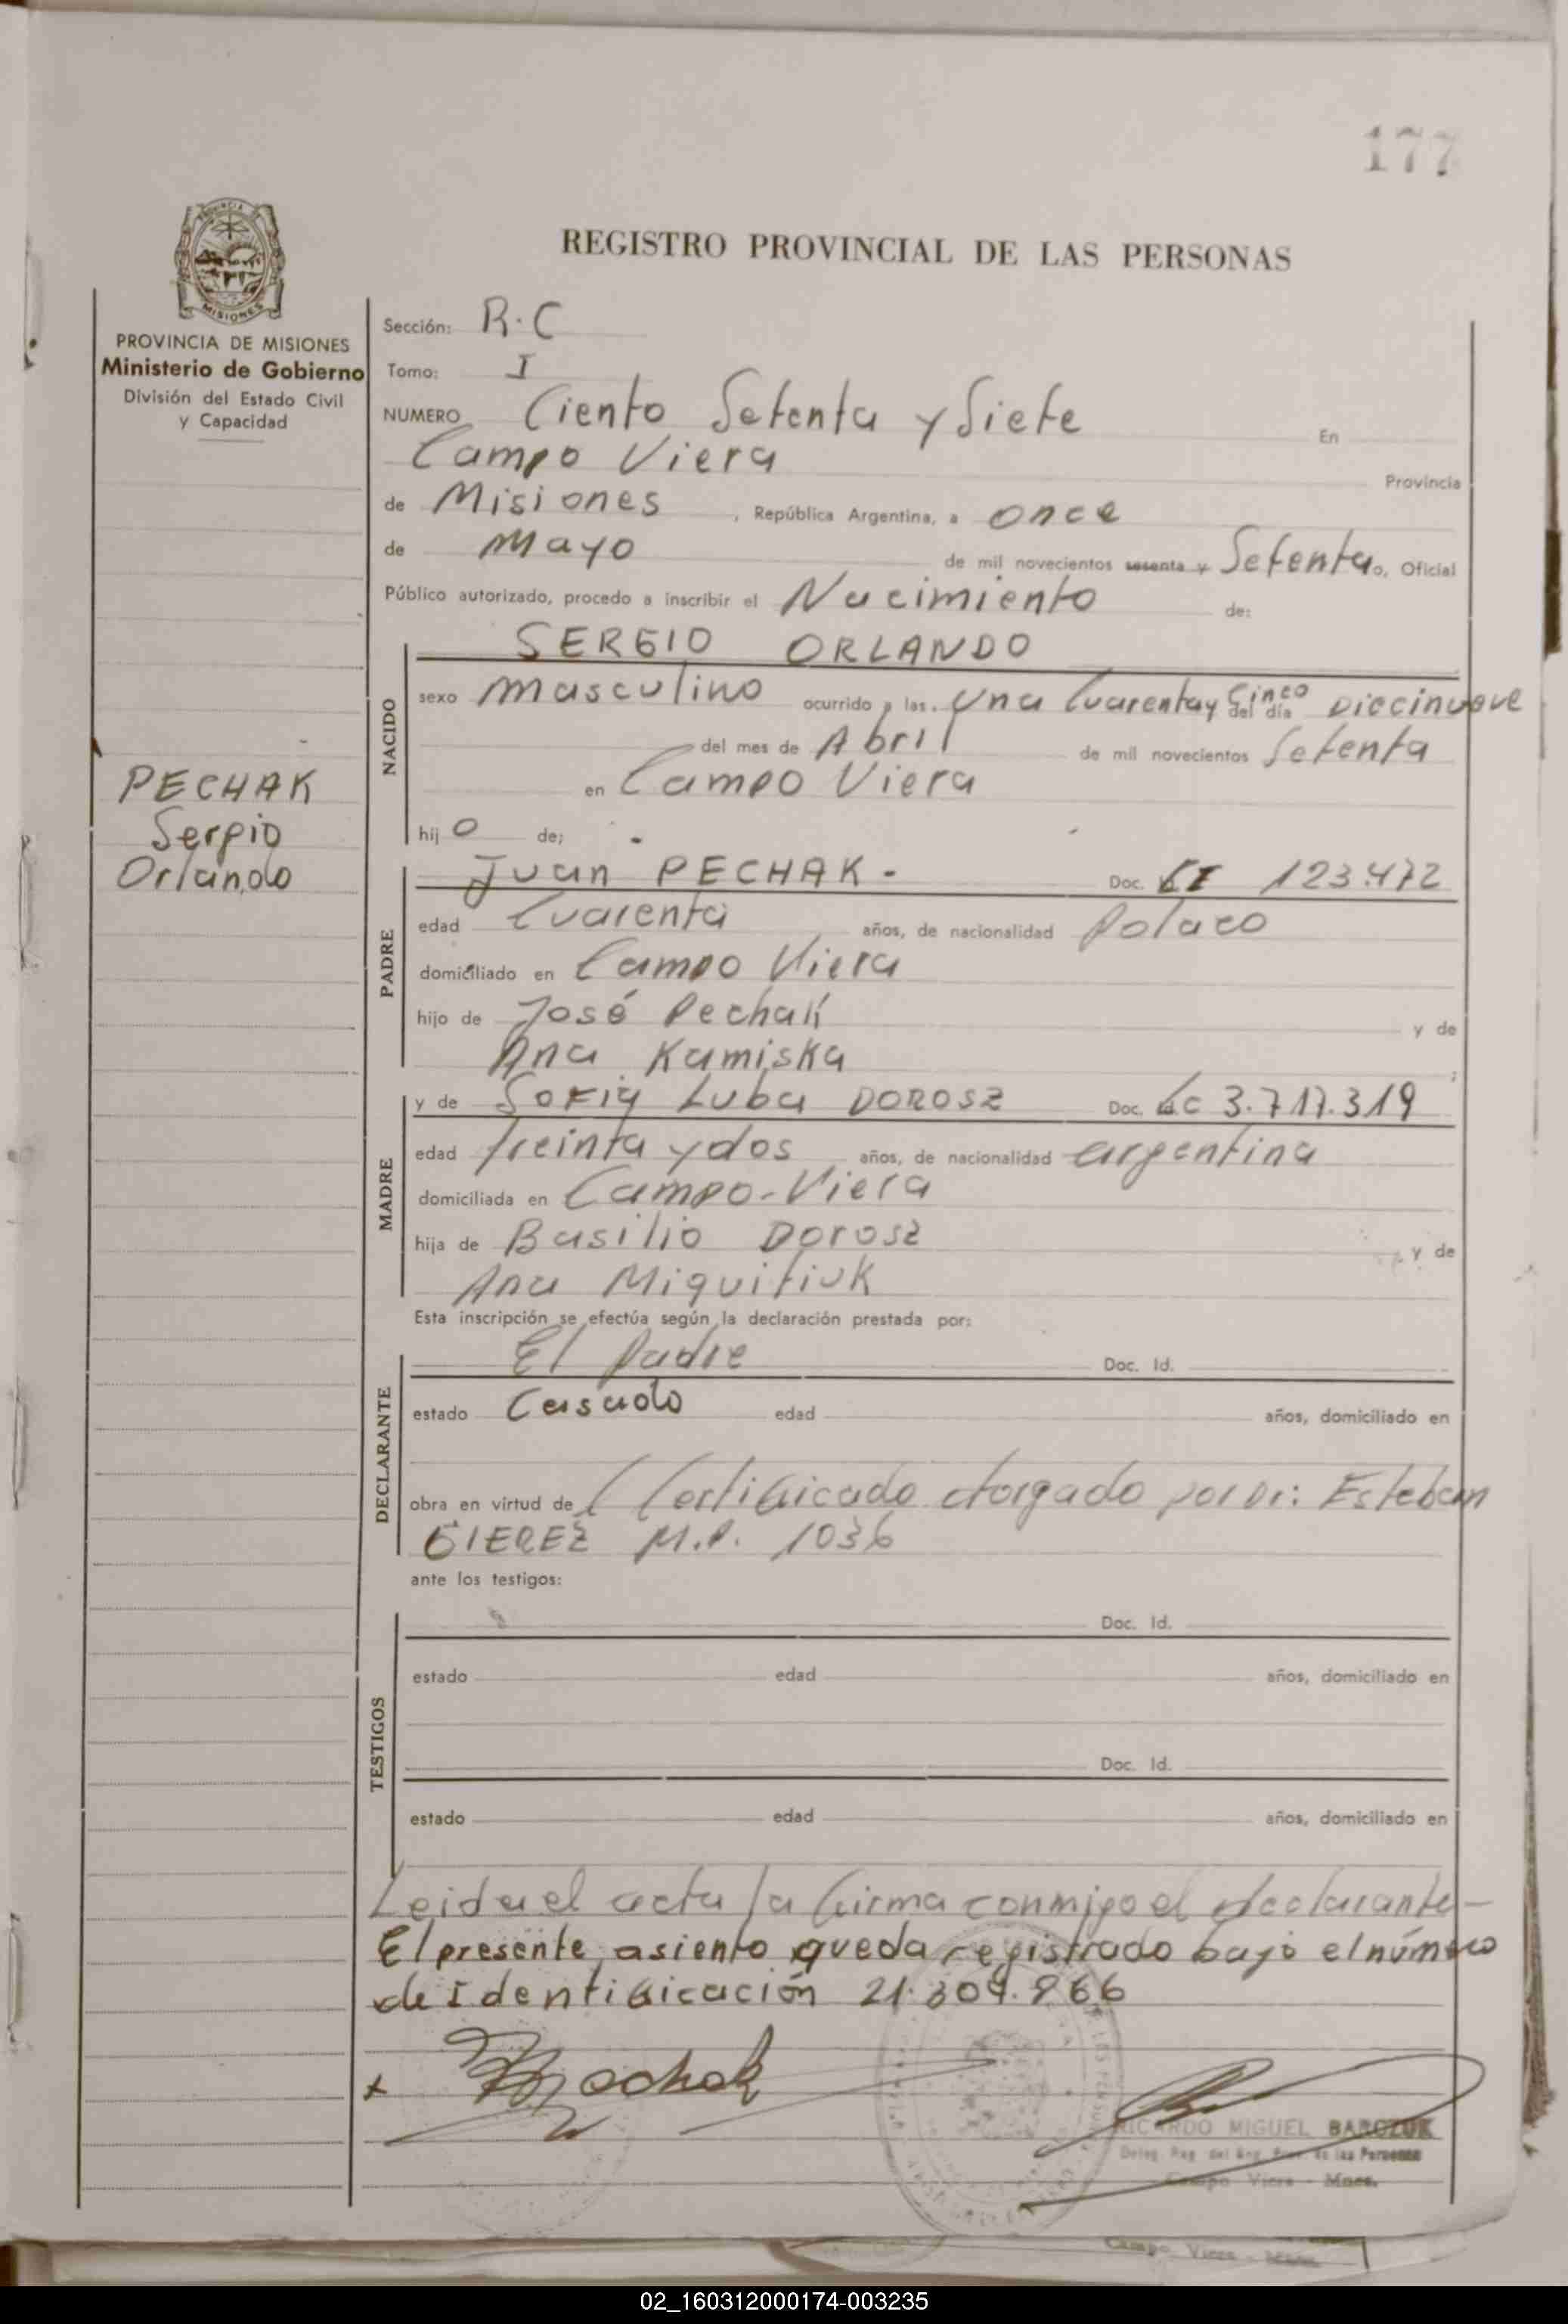 177
REGISTRO PROVINCIAL DE LAS PERSONAS
PROVINCIA DE MISIONES
Ministerio de Gobierno
División del Estado Civil
y Capacidad
Sección: R.C
Tomo: I
NUMERO Ciento Setenta y Siete En
Campo Viera Provincia
de Misiones , República Argentina, a once
de Mayo de mil novecientos sesenta y Setenta o, Oficial
Público autorizado, procedo a inscribir el Nacimiento de:
NACIDO
SERGIO ORLANDO
sexo masculino ocurrido a las. Una Cuarenta y Cinco del día Diecinueve
del mes de Abril de mil novecientos Setenta
en Campo Viera
hij o de;
PECHAK
Sergio
Orlando
PADRE
Juan PECHAK - Doc. CI 123.472
edad Cuarenta años, de nacionalidad Polaco
domiciliado en Campo Viera
hijo de José Pechak y de
Ana Kamiska ;
MADRE
y de Sofia Luba DOROSZ Doc. LC 3.717.319
edad treinta y dos años, de nacionalidad argentina
domiciliada en Campo-Viera
hija de Basilio Dorosz y de
Ana Miquitiuk
Esta inscripción se efectúa según la declaración prestada por:
DECLARANTE
El Padre Doc. Id.
estado Casado edad años, domiciliado en
obra en virtud de Certificado otorgado por Dr: Esteban
GIEREZ M.P. 1036
ante los testigos:
TESTIGOS
Doc. Id.
estado edad años, domiciliado en
Doc. Id.
estado edad años, domiciliado en
Leida el acta la firma conmigo el declarante-
El presente asiento queda registrado bajo el número
de Identificación 21.304.966
x Pechak
RICARDO MIGUEL BARCZUK
Deleg. Reg. del Reg. Prov. de las Personas
Campo Viera - Mnes.
Campo Viera - Mnes.
02_160312000174-003235